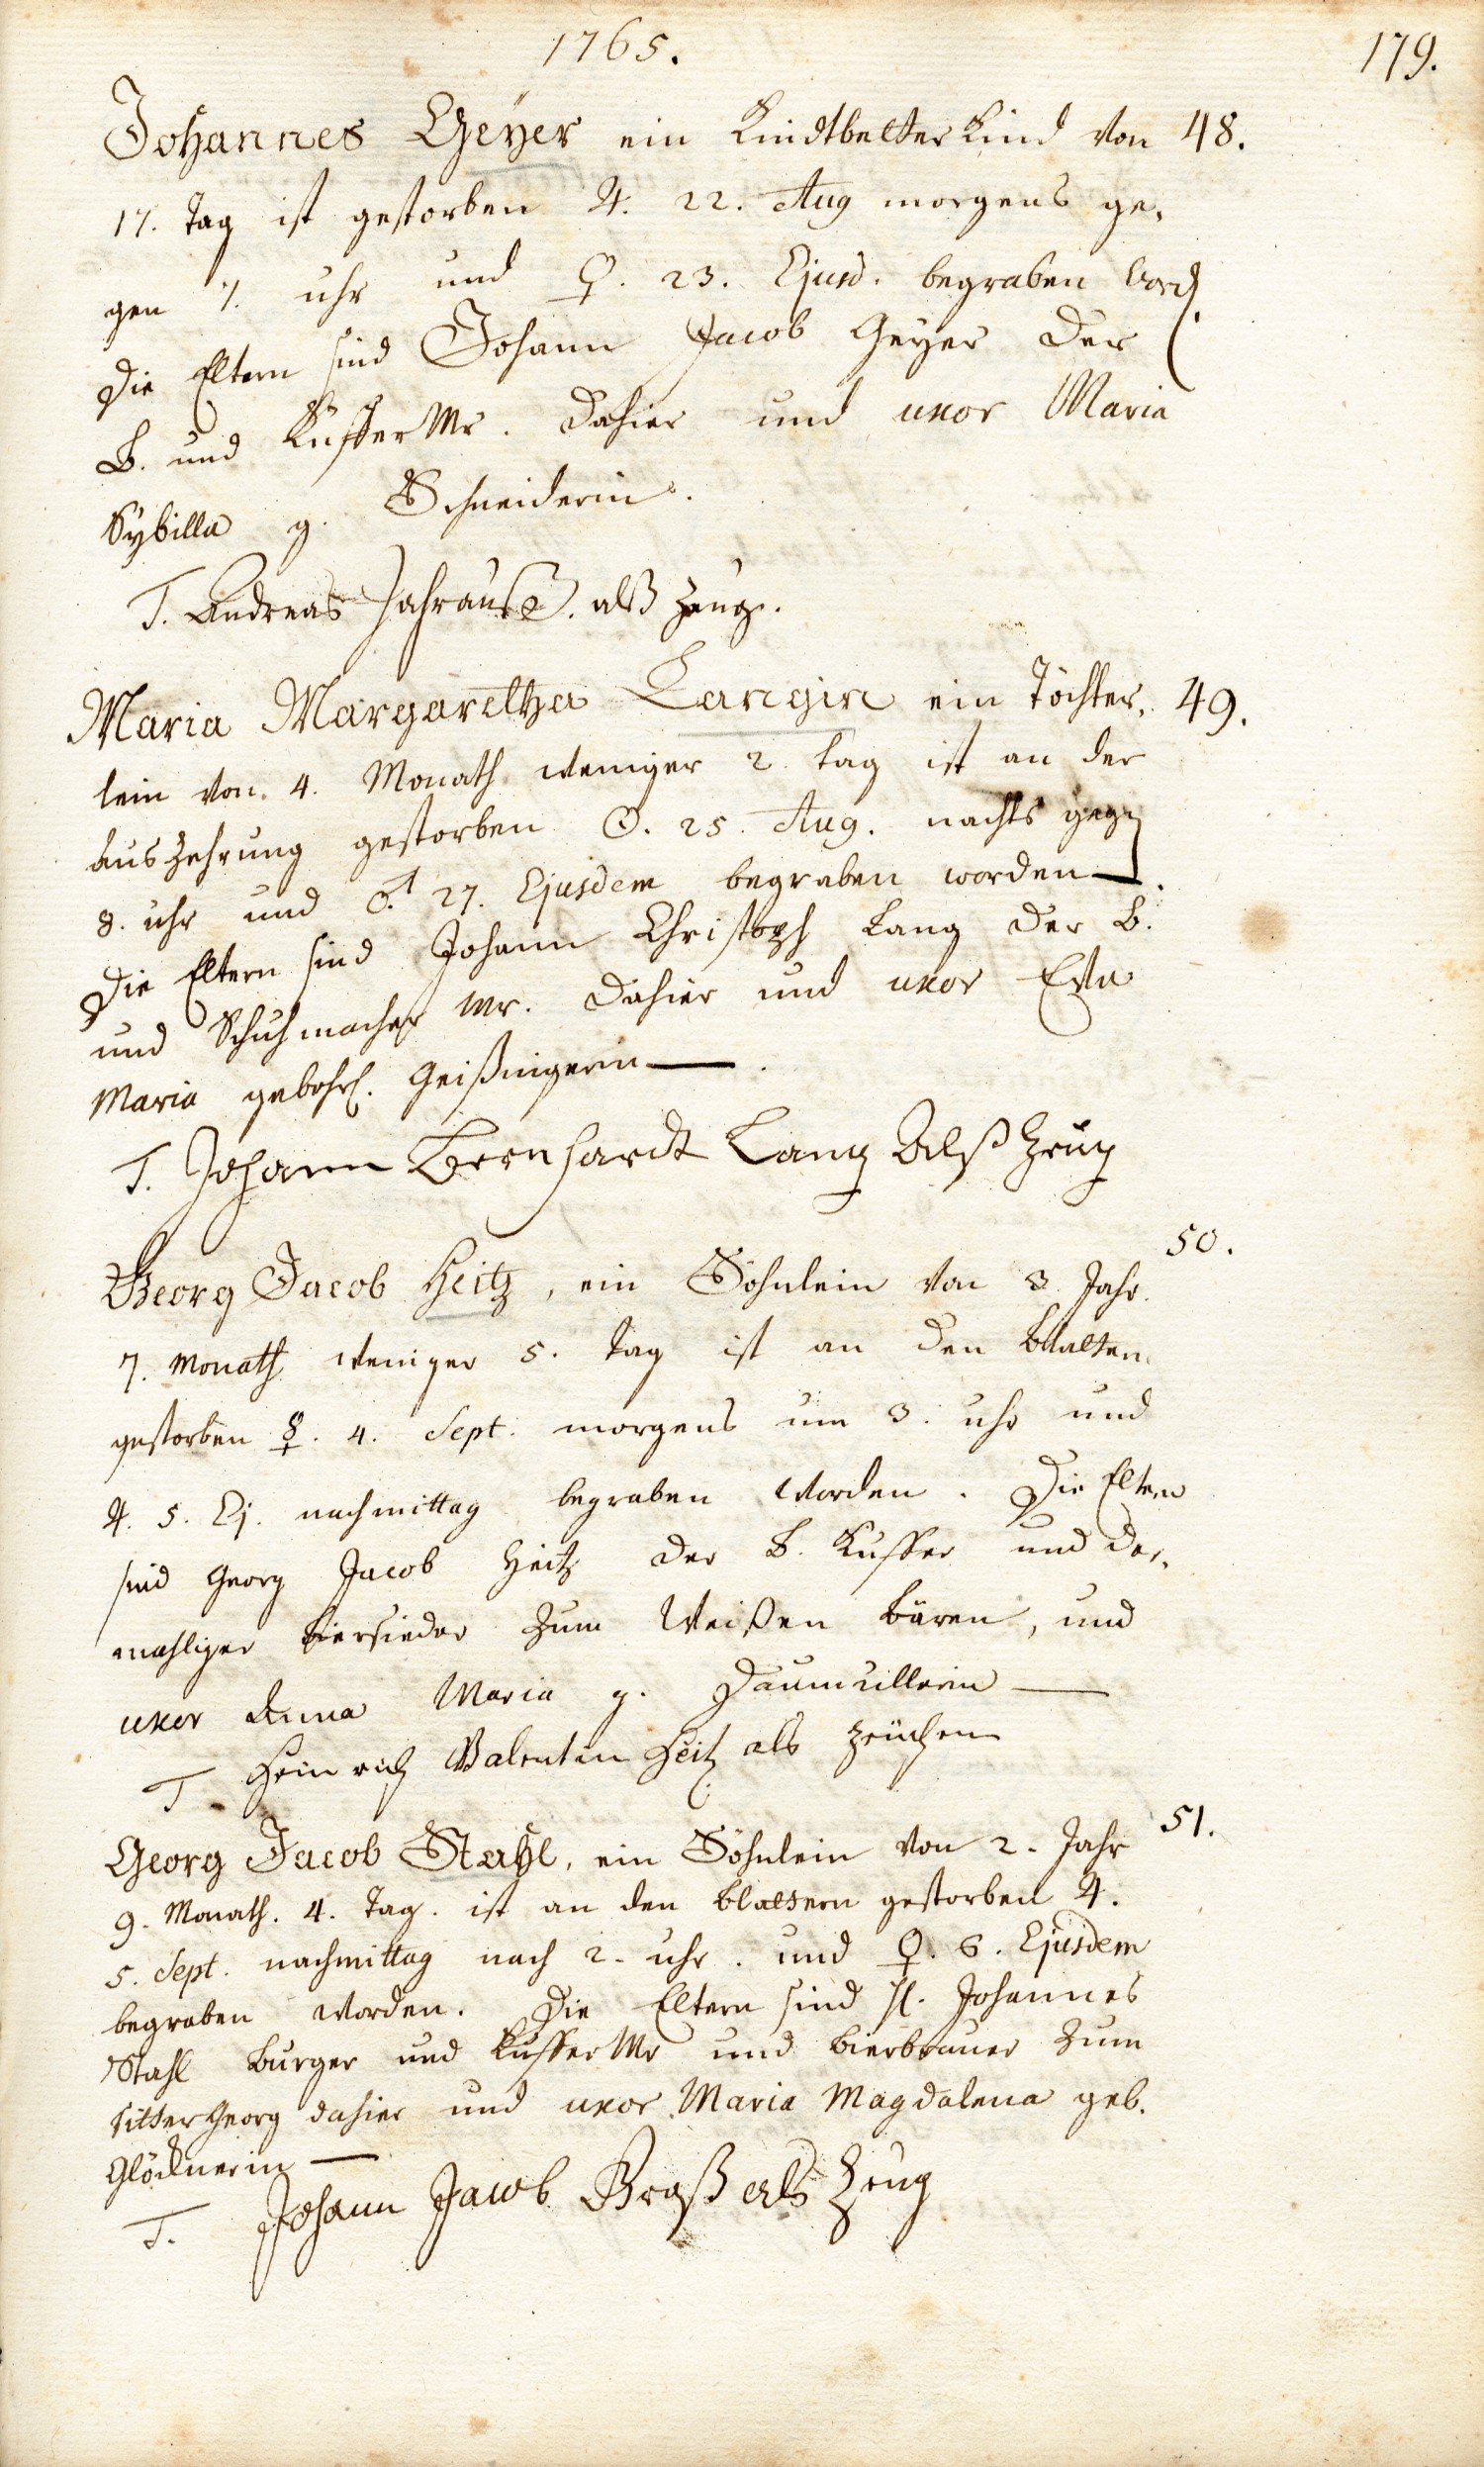 1765.
179.
Johannes Geÿer ein Kindtbetter Kind von 48.
17. Tag ist gestorben ♃. 22. Aug morgens ge,
gen 7. uhr und ♀. 23. Ejusd. begraben word.
Die Eltern sind Johann Jacob Geÿer der
B. und Küffer Mr. dahier und uxor Maria
Sÿbilla g. Schneiderin.
T. Andreas Jahrauß. alß Zeug.
Maria Margaretha Langin ein Töchter, 49.
lein von 4. Monath weniger 2 tag ist an der
auszehrung gestorben ☉. 25. Aug. nachts gegen
8. uhr und ♂. 27. Ejusdem begraben worden.
Die Eltern sind Johann Christoph Lang der B.
und Schuhmacher Mr. dahier und uxor Eva
Maria gebohr. Geißingerin —.
T. Johann Bernhardt Lang Alß Zeug
50.
Georg Jacob Heitz, ein Söhnlein von 3 Jahr.
7. Monath weniger 5. tag ist an den blattern
gestorben ☿. 4. Sept. morgens um 3. uhr und
♃. 5. Ej. nachmittag begraben worden. Die Eltern
sind Georg Jacob Heitz der B. Küffer und der,
mahliger biersieder zum Weißen bären, und
uxor Anna Maria g. Daumüllerin —
T. Heinrich Valentin Heitz als zeuchen
51.
Georg Jacob Stahl, ein Söhnlein von 2. Jahr
9. Monath. 4. Tag. ist an den blattern gestorben ♃.
5. Sept. nachmittag nach 2. uhr. und ♀. 6. Ejusdem
begraben worden. Die Eltern sind H. Johannes
Stahl burger und Küffer Mr und bierbrauer zum
ritter Georg dahier und uxor Maria Magdalena geb.
Glöcknerin —
T. Johann Jacob Groß als Zeug